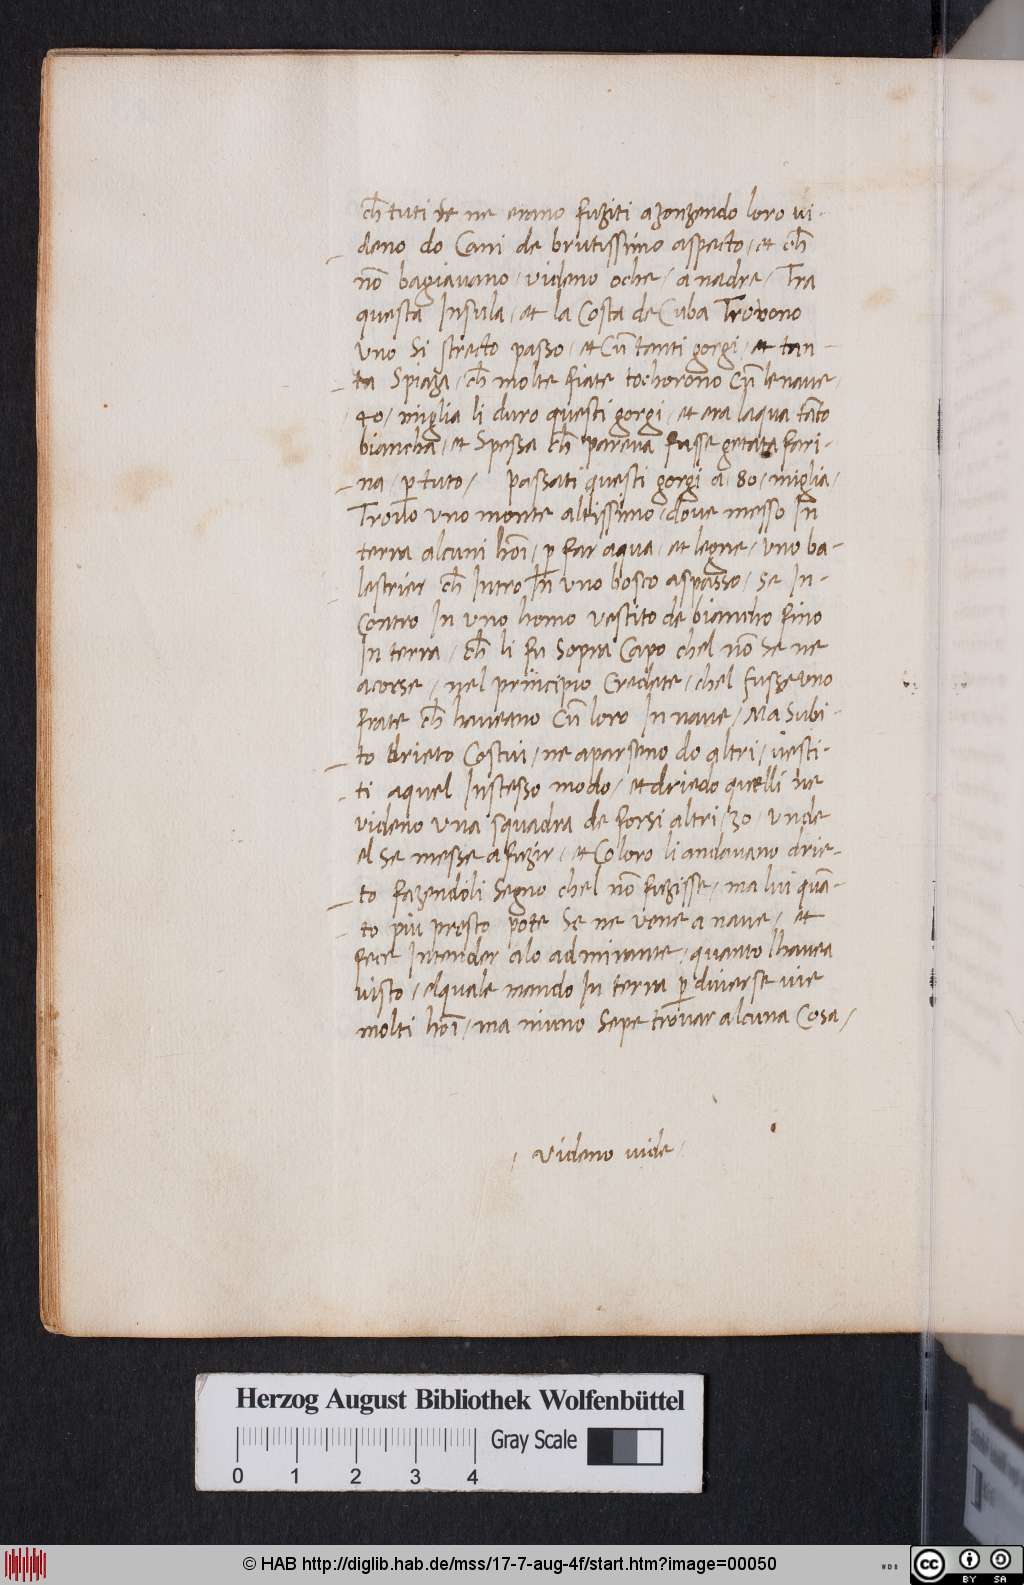 ch̄ tuti de ne erano fuziti azonzendo loro vi-
deno do Cani de brutissimo aspecto / et ch̄
nō bagiavano / videno oche / anadre / Tra
questa Insula / et la Costa de Cuba Trovono
vno Si strecto passo / et Cū tanti gorgi / et tan-
ta Spiaza / ch̄ molte fiate tochorono Cū le nave /
40 / miglia li duro questi gorgi / et era laqua tāto
biancha / et Spessa ch̄ pareva fusse getata fari-
na / p tuto / passati questi gorgi a 80 / miglia /
Trovo vno monte altissimo / dove messo In
terra alcuni hoī / p far aqua / et legne / vno ba-
lestrier ch̄ Intro In vno bosco aspasso / se In-
contro In vno homo vestito de biancho fino
In terra / ch̄ li fu Sopra Capo chel nō se ne
acorse / nel principio Credete / chel fusse vno
frate ch̄ haveano Cū loro In nave / Ma Subi-
to drieto Costui / ne aparseno do altri / vesti-
ti aquel Instesso modo / et driedo quelli ne
videno vna squadra de forsi altri / 30 / vnde
el se messe afuzir / et Coloro li andavano drie-
to fazendoli Segno chel nō fuzisse / ma lui quā-
to piu presto pote Se ne vene a nave / et
fece Intender alo admirante / quanto lhavea
visto / elquale mando In terra p diverse vie
molti hoī / ma niuno Sepe trovar alcuna Cosa /
/ videno vide /
Herzog August Bibliothek Wolfenbüttel
Gray Scale
0 1 2 3 4
© HAB http://diglib.hab.de/mss/17-7-aug-4f/start.htm?image=00050
WDB
cc BY SA